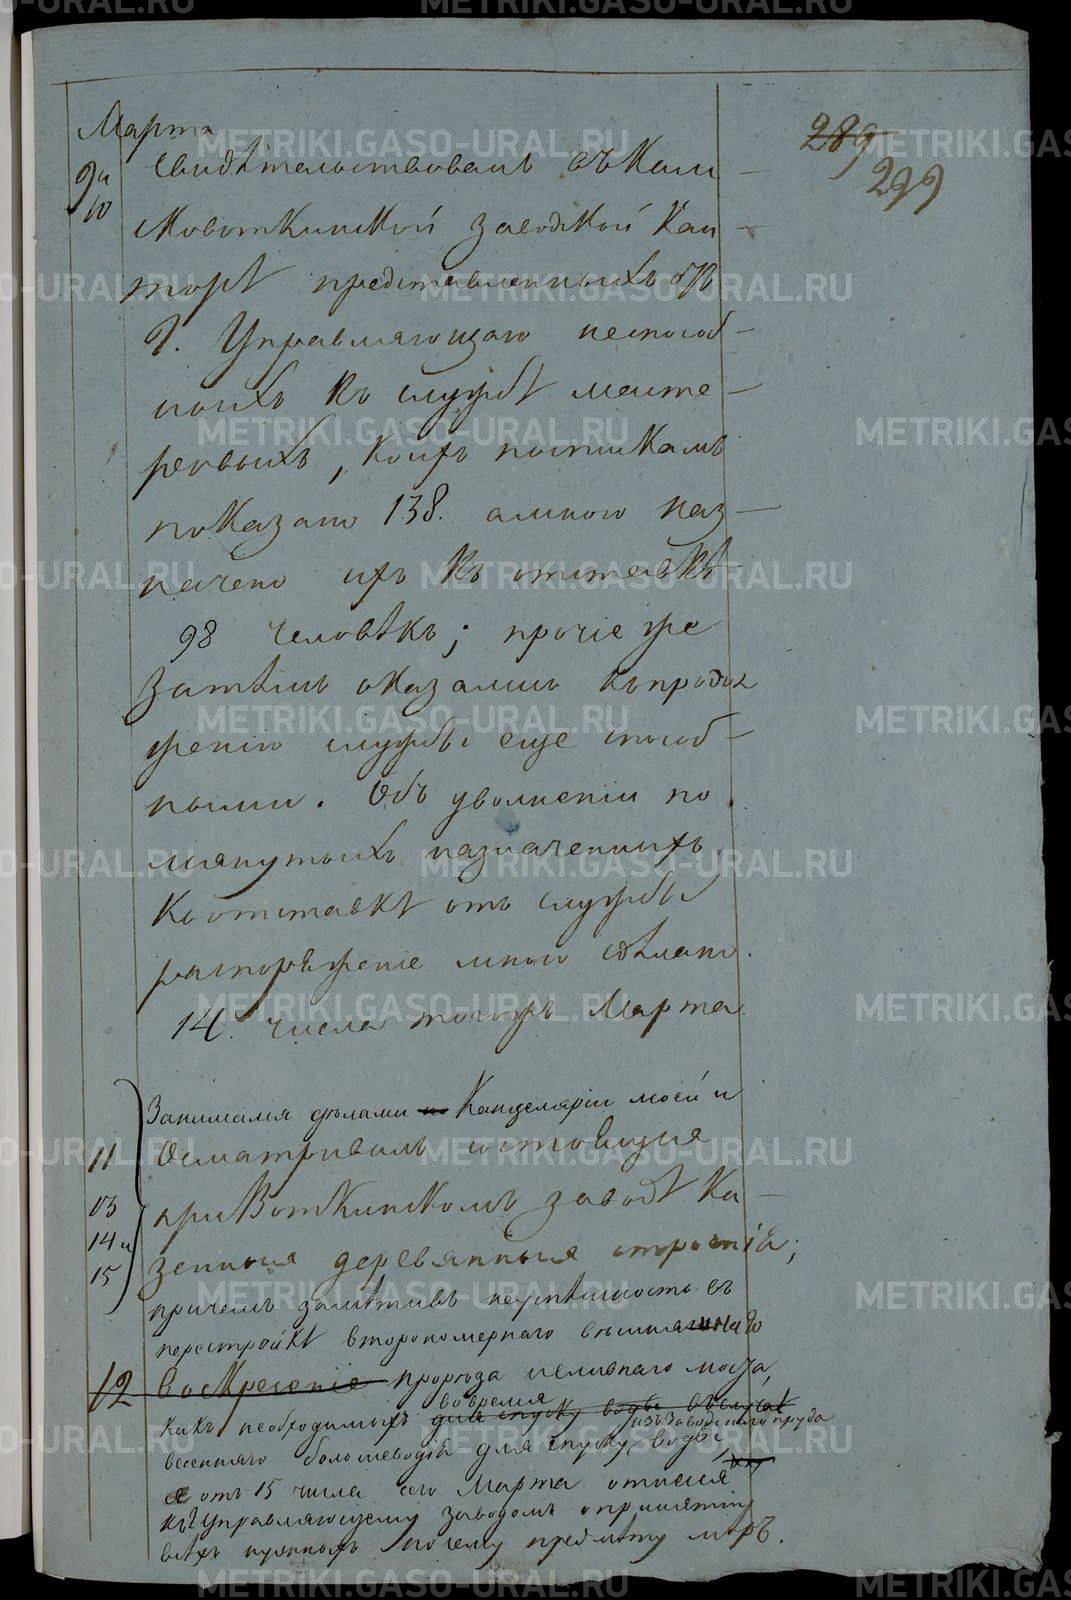 Марта
289
299
9 и 10
свидѣтельствовалъ въ Кам
сковоткинской заводской Кан
торѣ представленныхъ отъ
Г. Управляющаго неспособ
ныхъ къ службѣ масте
ровыхъ, коихъ по спискамъ
показано 138. а мною наз
начено ихъ къ отставкѣ
98 человѣкъ; прочіе же
затѣмъ оказались къ продол
женію службы еще способ
ными. Объ уволненіи по
мянутыхъ назначенныхъ
къ отставкѣ отъ службы
распоряженіе мною сдѣлано
14. числа тогожъ Марта
Занимался дѣлами по Канцеляріи моей и
11
Осматривалъ состоящія
13
при Воткинскомъ заводѣ ка
14 и
зенныя деревянныя строенія;
15
причемъ замѣтивъ неуспѣшность въ
перестройкѣ второномернаго вешняшнаго
12 воскресеніе прореза и сливнаго моста,
во время
какъ необходимыхъ для спуску воды въ случаѣ
изъ заводскаго пруда
весенняго большеводія для спуску воды,
я отъ 15 числа сего Марта отнесся
къ Управляющему заводомъ о принятіи
всѣхъ нужныхъ по сему предмѣту мѣръ.
METRIKI.GASO-URAL.RU